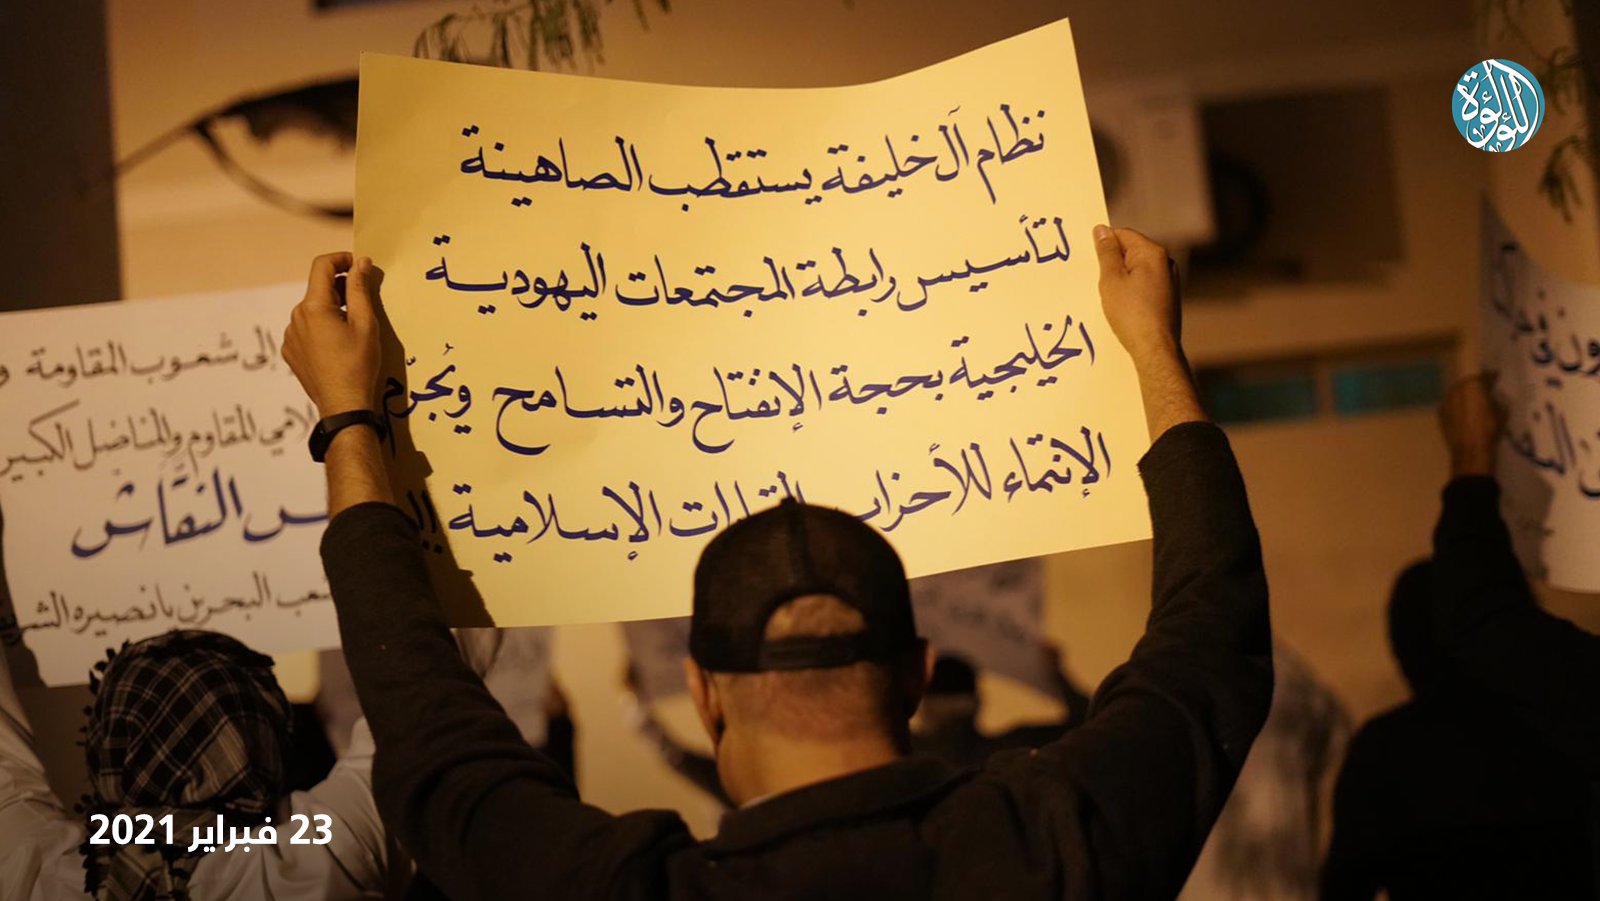 نظام آل خليفة يستقطب الصاهينة
لتأسيس رابطة المجتمعات اليهودية
الخليجية بحجة الإنفتاح والتسامح ويُجرّم
الإنتماء للأحزاب الإسلامية
إلى شعوب المقاومة
المقاوم والمناضل الكبير
النقّاش
شعب البحرين بانصيره
اللؤلؤة
23 فبراير 2021